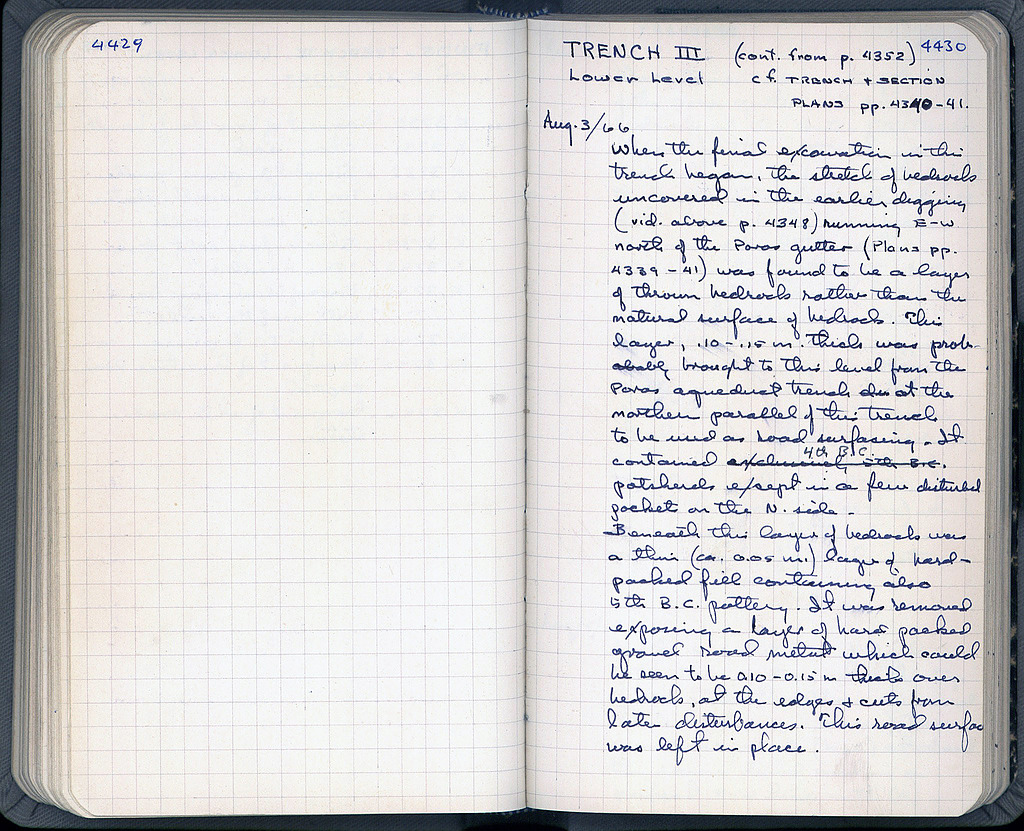 4429
4430
TRENCH III (cont. from p. 4352)
Lower Level cf. TRENCH + SECTION
PLANS pp. 4340-41.
Aug. 3/66
When the final excavation in this
trench began, the stretch of bedrock
uncovered in the earlier digging
(vid. above p. 4348) running E-W
north of the Poros gutter (Plans pp.
4339-41) was found to be a layer
of thrown bedrock rather than the
natural surface of bedrock. This
layer, .10-.15 m. thick was prob-
ably brought to this level from the
Poros aqueduct trench at the
northern parallel of this trench
to be used as road surfacing. It
4th B.C.
contained exclusively 5th B.C.
potsherds except in a few disturbed
pockets on the N. side.
Beneath this layer of bedrock was
a thin (ca. 0.05 m.) layer of hard-
packed fill containing also
5th B.C. pottery. It was removed
exposing a layer of hard packed
gravel road metal which could
be seen to be 0.10-0.15 m thick over
bedrock, at the edges + cuts from
later disturbances. This road surfac
was left in place.